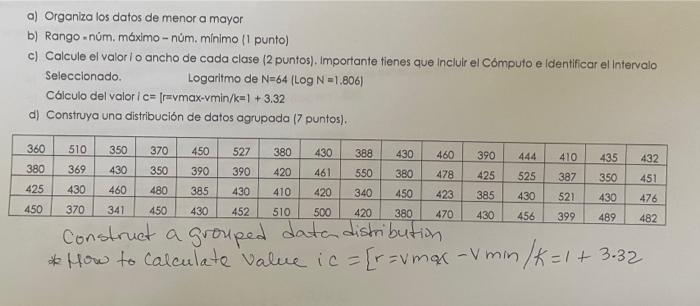 a) Organiza los datos de menor a mayor
b) Rango = núm. máximo – núm. mínimo (1 punto)
c) Calcule el valor i o ancho de cada clase (2 puntos). Importante tienes que incluir el Cómputo e identificar el intervalo
Seleccionado. Logaritmo de N=64 (Log N =1.806)
Cálculo del valor i c= [r=vmax-vmin/k=1 + 3.32
d) Construya una distribución de datos agrupada (7 puntos).
360 510 350 370 450 527 380 430 388 430 460 390 444 410 435 432
380 369 430 350 390 390 420 461 550 380 478 425 525 387 350 451
425 430 460 480 385 430 410 420 340 450 423 385 430 521 430 476
450 370 341 450 430 452 510 500 420 380 470 430 456 399 489 482
Construct a grouped data distribution
* How to Calculate Value i c = [r = vmax - V min /K = 1 + 3.32